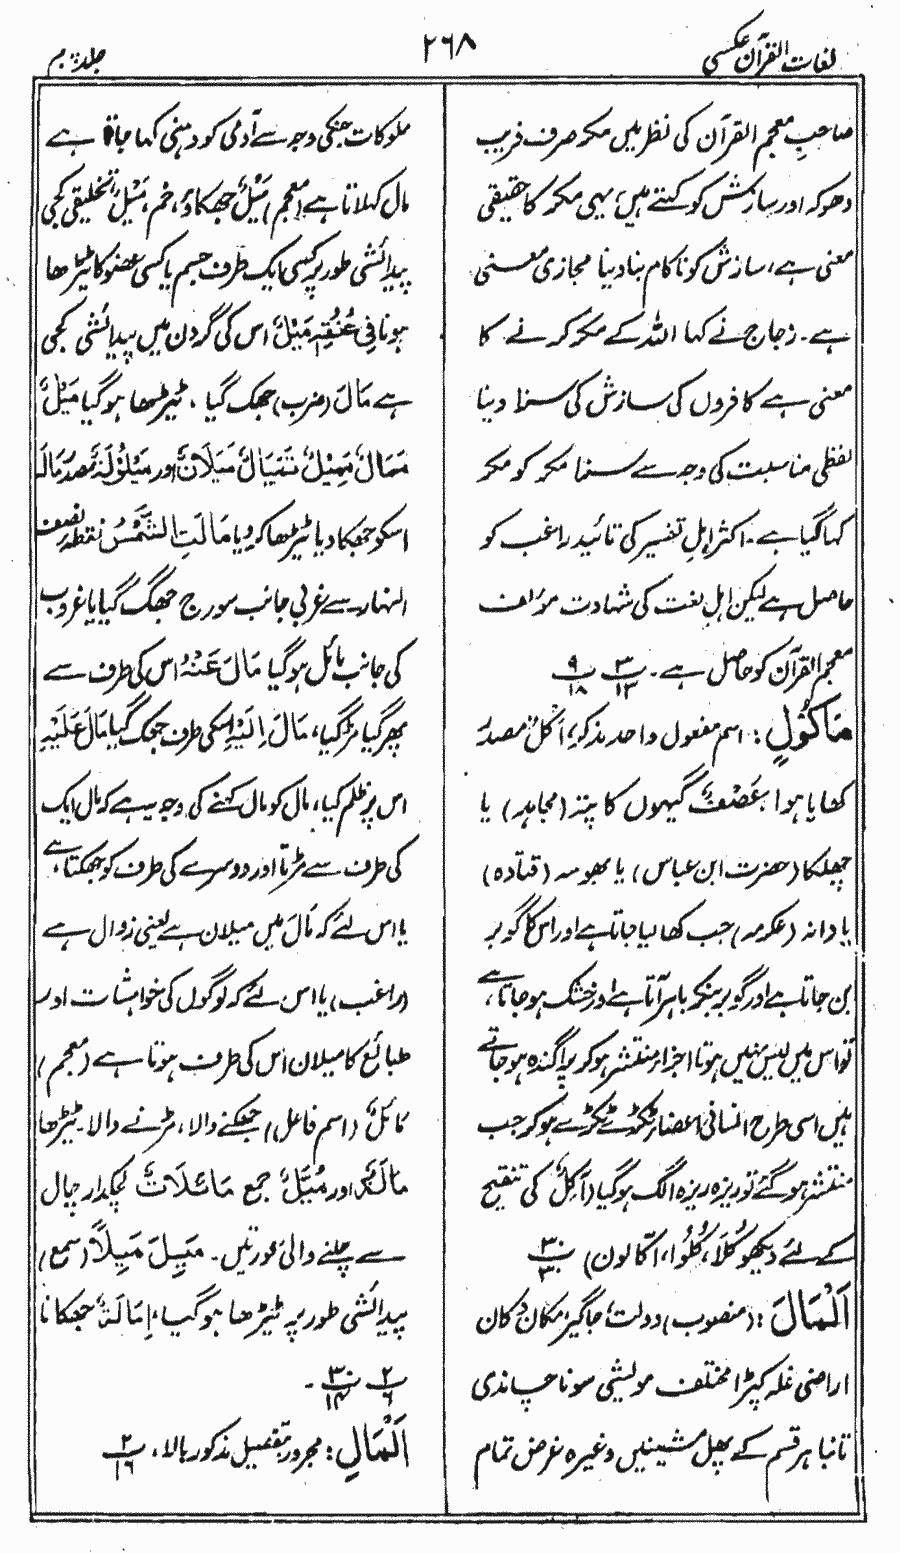 لغات القرآن عکسی
۲۶۸
جلد پنجم
صاحبِ معجم القرآن کی نظر میں مکر صرف فریب
دھوکہ اور سازش کو کہتے ہیں، یہی مکر کا حقیقی
معنی ہے، سازش کو ناکام بنا دینا مجازی معنی
ہے۔ زجاج نے کہا اللہ کے مکر کرنے کا
معنی ہے کافروں کی سازش کی سزا دینا
لفظی مناسبت کی وجہ سے سزا مکر کو مکر
کہا گیا ہے۔ اکثر اہلِ تفسیر کی تائید راغب کو
حاصل ہے لیکن اہلِ لغت کی شہادت مؤلف
معجم القرآن کو حاصل ہے۔ ۳/۱۳ ۹/۱۸
مَأْكُوْلٍ: اسم مفعول واحد مذکر، اَكْلٌ مصدر
کھایا ہوا۔ عَصْفٌ گیہوں کا پتہ (مجاہد) یا
چھلکا (حضرت ابن عباس) یا بھوسہ (قتادہ)
یا دانہ (عکرمہ) جب کھا لیا جاتا ہے اور اس کا گوبر
بن جاتا ہے اور گوبر بنکر باہر آتا ہے اور خشک ہو جاتا ہے،
تو اس میں لیس نہیں ہوتا اجزاء منتشر ہو کر پراگندہ ہو جاتے
ہیں اسی طرح انسانی اعضاء ٹکڑے ٹکڑے ہو کر جب
منتشر ہو گئے تو ریزہ ریزہ الگ ہو گیا (اَکْلٌ کی تنقیح
کے لئے دیکھو كُلَا، كُلُوْا، اَكَّالون) ۳۰/۳۰
اَلْمَالَ: (منصوب) دولت، جاگیر، مکان دکان
اراضی غلہ کپڑا مختلف مویشی سونا چاندی
تانبا ہر قسم کے پھل مشینیں وغیرہ غرض تمام
ملوکات جنکی وجہ سے آدمی کو دہنی کہا جاتا ہے
مال کہلاتا ہے (معجم) مَيْلٌ جھکاؤ، خم، مَيَلٌ تخلیقی کجی
پیدائشی طور پر کسی ایک طرف جسم یا کسی عضو کا ٹیڑھا
ہونا فِي عُنُقِهٖ مَيَلٌ اس کی گردن میں پیدائشی کجی
ہے مَالَ (ضرب) جھک گیا، ٹیڑھا ہو گیا مَيْلٌ
مَمَالٌ مَمِيْلٌ تَمْيَالٌ مَيَلَانٌ اور مَيْلُوْلَةٌ مصدر مَالَهٗ
اسکو جھکا دیا ٹیڑھا کر دیا مَالَتِ الشَّمْسُ نقطہ نصف
النہار سے غربی جانب سورج جھک گیا یا غروب
کی جانب مائل ہو گیا مَالَ عَنْهُ اس کی طرف سے
پھر گیا مڑ گیا، مَالَ اِلَيْهِ اسکی طرف جھک گیا مَالَ عَلَيْهِ
اس پر ظلم کیا، مال کو مال کہنے کی وجہ یہ ہے کہ مال ایک
کی طرف سے مڑتا اور دوسرے کی طرف کو جھکتا ہے،
یا اس لئے کہ مَالَ میں میلان ہے یعنی زوال ہے
(راغب) یا اس لئے کہ لوگوں کی خواہشات اور
طبائع کا میلان اس کی طرف ہوتا ہے (معجم)
مَائِلٌ (اسم فاعل) جھکنے والا، مڑنے والا۔ ٹیڑھا
مَالَةٌ اور مُيَّلٌ جمع مَائلَاتٌ لچکدار چال
سے چلنے والی عورتیں۔ مَيِلَ مَيَلًا (سمع)
پیدائشی طور پہ ٹیڑھا ہو گیا، اِمَالَةٌ جھکانا
۲/۶ ۳۰/۱۴۔
اَلْمَالِ: مجرور بتفصیل مذکور بالا، ۲/۱۶